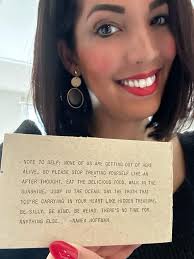 - NOTE TO SELF: NONE OF US ARE GETTING OUT OF HERE
ALIVE, SO PLEASE STOP TREATING YOURSELF LIKE AN
AFTER THOUGHT. EAT THE DELICIOUS FOOD. WALK IN THE
SUNSHINE. JUMP IN THE OCEAN. SAY THE TRUTH THAT
YOU'RE CARRYING IN YOUR HEART LIKE HIDDEN TREASURE.
BE SILLY. BE KIND. BE WEIRD. THERE'S NO TIME FOR
ANYTHING ELSE. -NANEA HOFFMAN.